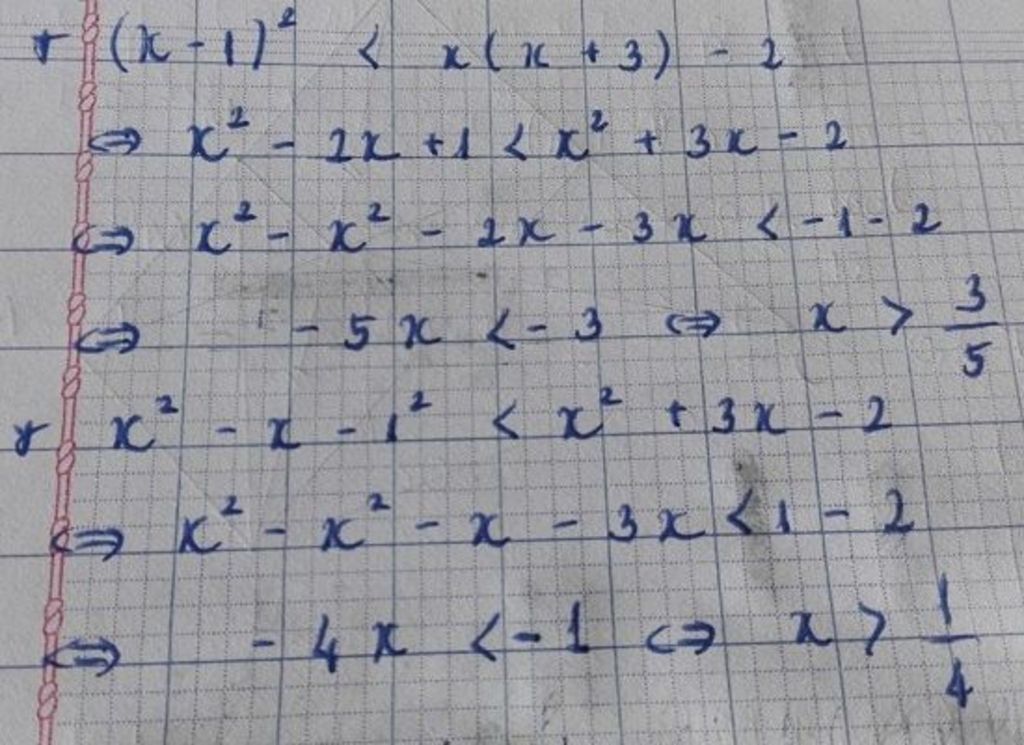 + (x - 1)² < x(x + 3) - 2
⇔ x² - 2x + 1 < x² + 3x - 2
⇔ x² - x² - 2x - 3x < -1 - 2
⇔ - 5x < - 3 ⇔ x > 3/5
+ x² - x - 1² < x² + 3x - 2
⇔ x² - x² - x - 3x < 1 - 2
⇔ - 4x < - 1 ⇔ x > 1/4